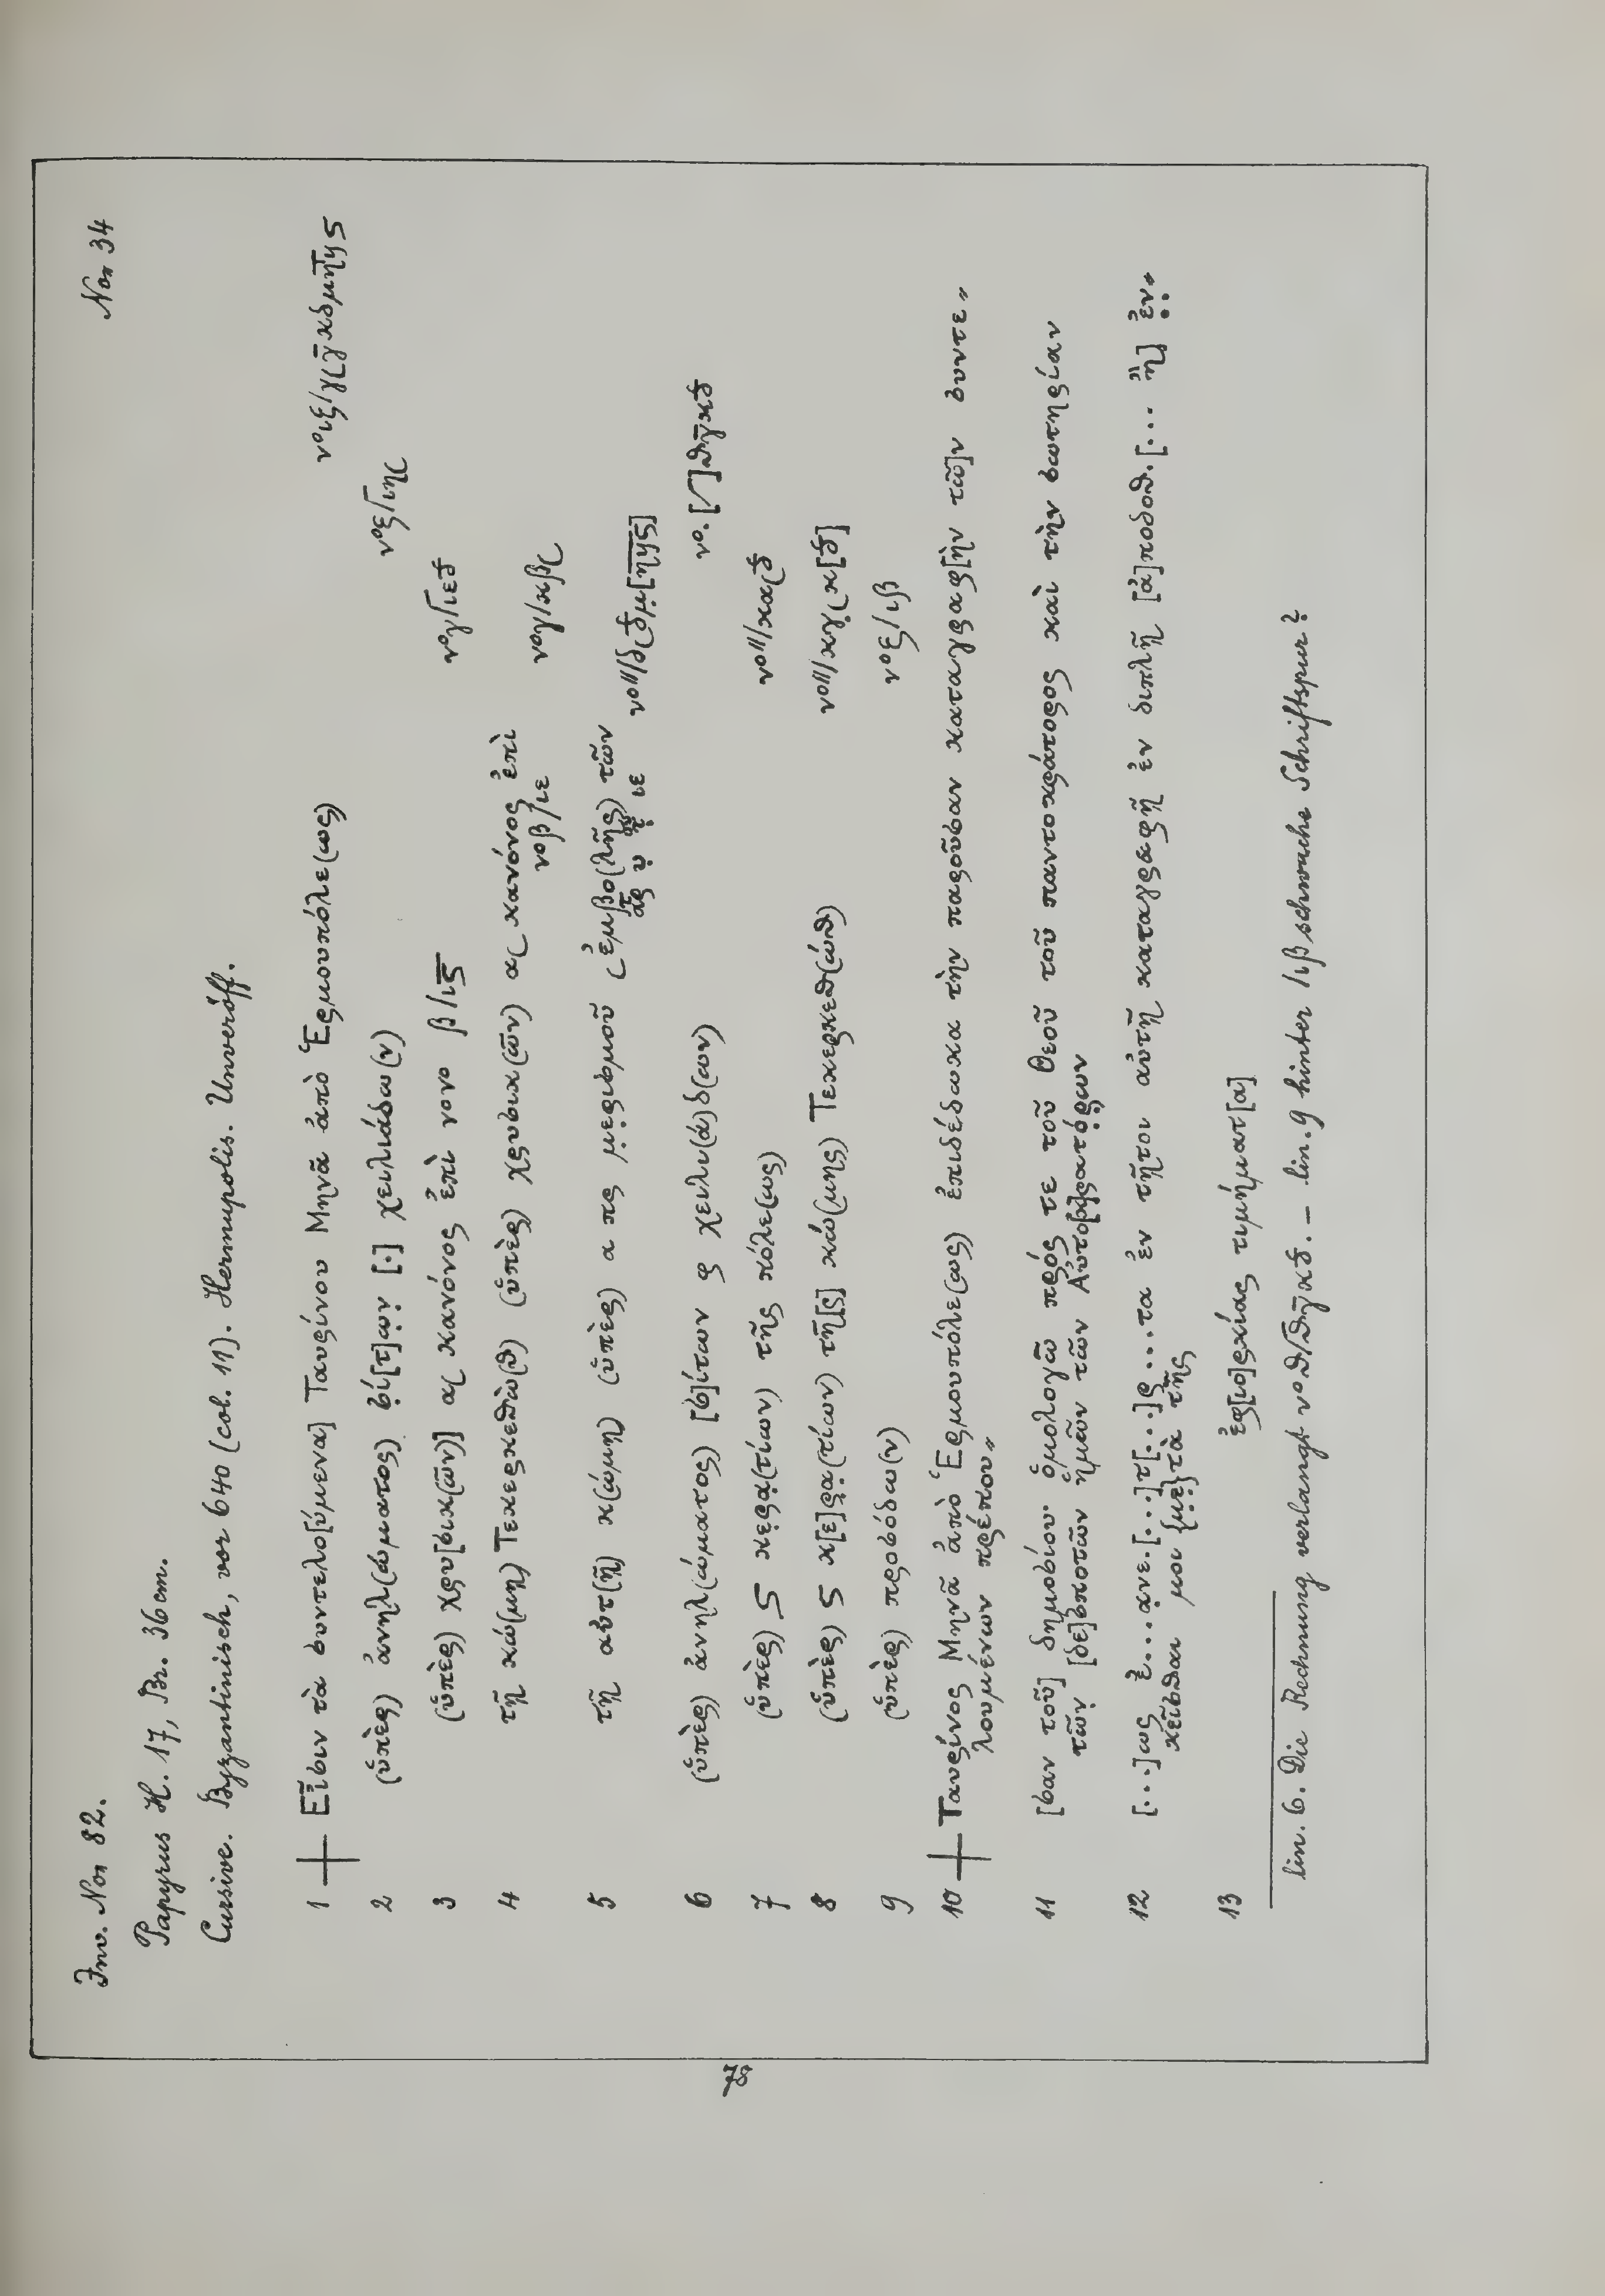 Inv. Nor 82. Nor 34
Papyrus H. 17, Br. 36 cm.
Cursive. Byzantinisch, vor 640 (col. 11). Hermupolis. Unveröff.
1 Εἴσιν τὰ συντελο[ύμενα] Ταυρίνου Μηνᾶ ἀπὸ Ἑρμουπόλε(ως)
2 (ὑπὲρ) ἀνηλ(ώματος) σί[τ]ων [.] χειλιάδω(ν) νοξ/ιη
3 (ὑπὲρ) χρυ[σικ(ῶν)] α κανόνος ἐπὶ νονο β/ις νογ/ιεδ
4 τῇ κώ(μη) Τεκερκεθὼ(θ) (ὑπὲρ) χρυσικ(ῶν) α κανόνος ἐπὶ
νοβ/ιε νογ/κβ
5 τῇ αὐτ(ῇ) κ(ώμη) (ὑπὲρ) α πς μερισμοῦ ἐμβο(λῆς) τῶν
ιε
6 (ὑπὲρ) ἀνηλ(ώματος) [σ]ίτων φ χειλι(ά)δ(ων)
7 (ὑπὲρ) ϛ κερα(τίων) τῆς πόλε(ως)
8 (ὑπὲρ) ϛ κ[ε]ρα(τίων) τῆ[ς] κώ(μης) Τεκερκεθ(ώθ)
9 (ὑπὲρ) προσόδω(ν) νοξ/ιβ
10 Ταυρίνος Μηνᾶ ἀπὸ Ἑρμουπόλε(ως) ἐπιδέδωκα τὴν παροῦσαν καταγραφ[ὴν τῶ]ν συντε〃
λουμένων πρέπου〃
11 [σαν τοῦ] δημοσίου· ὁμολογῶ πρός τε τοῦ Θεοῦ τοῦ παντοκράτορος καὶ τὴν σωτηρίαν
τῶν [δε]σποτῶν ἡμῶν τῶν Αὐτο[κ]ρατόρων
12 [...]ως ἐ....ανε.[...]τ[...]ρ...τα ἐν τῆτοι αὐτῆ καταγραφῇ ἐν διπλῇ [ἀ]ποδοθ.[... ἢ] ἐν〃
κεῖσθαι μοι {με}τὰ τῆς
13 ἐφ[ιο]ρκίας τιμήματ[α]
lin. 6. Die Rechnung verlangt νοθ/θγκδ. – lin. 9 hinter /ιβ schwache Schriftspur?
78